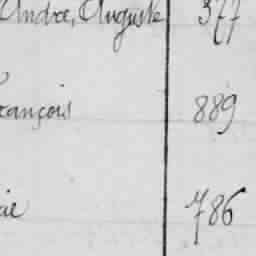 André, Auguste 377
rançois 889
ie 786